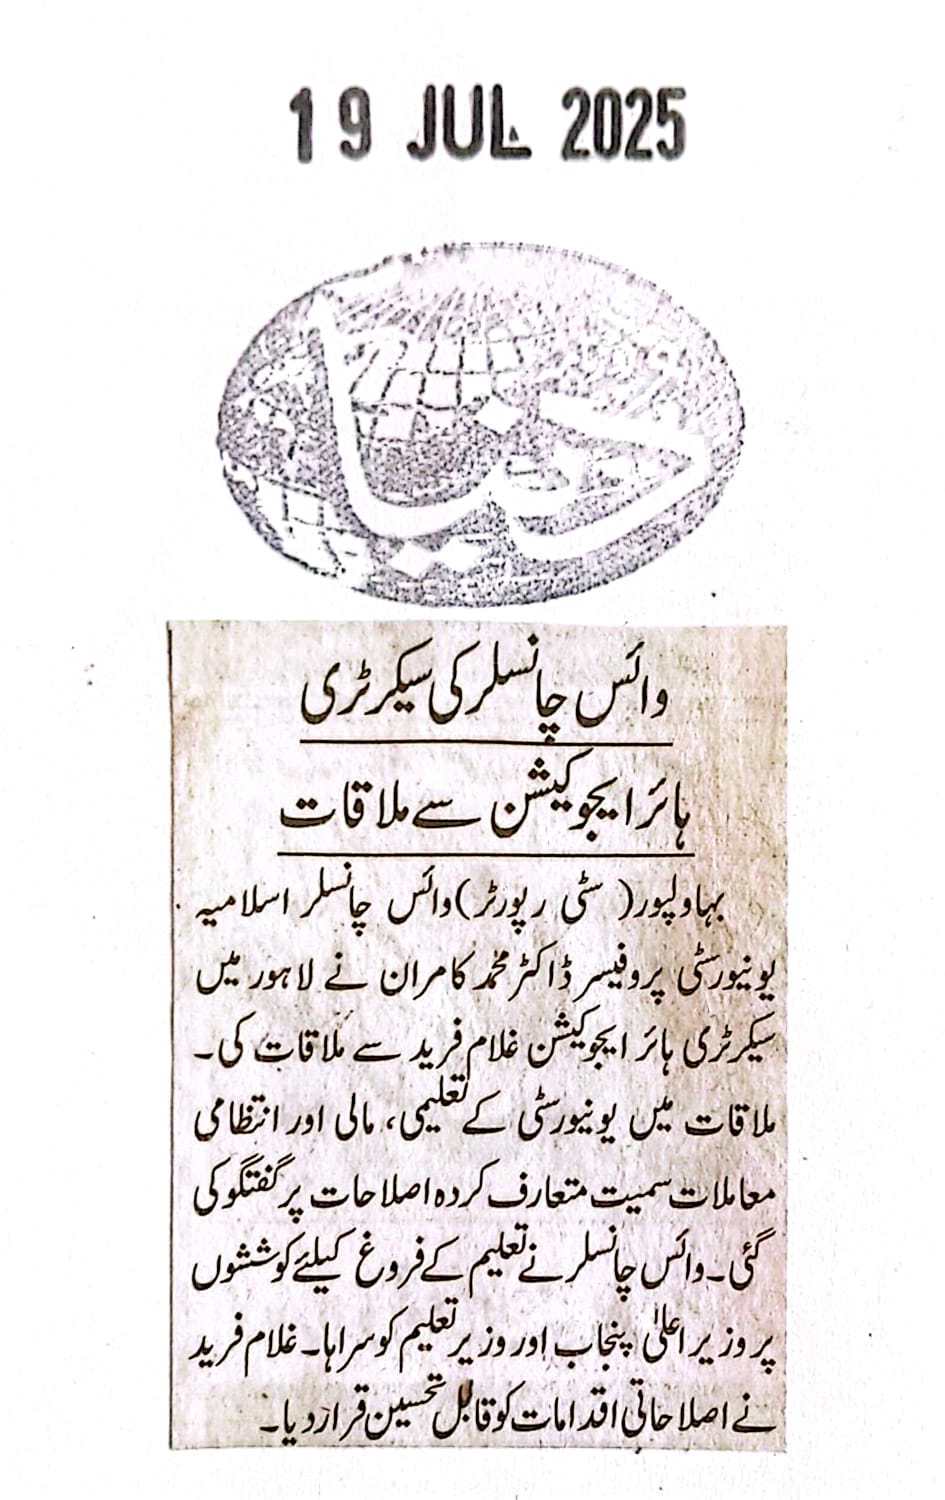 19 JUL 2025
دنیا
وائس چانسلر کی سیکرٹری
ہائر ایجوکیشن سے ملاقات
بہاولپور( سٹی رپورٹر)وائس چانسلر اسلامیہ
یونیورسٹی پروفیسر ڈاکٹر محمد کامران نے لاہور میں
سیکرٹری ہائر ایجوکیشن غلام فرید سے ملاقات کی۔
ملاقات میں یونیورسٹی کے تعلیمی، مالی اور انتظامی
معاملات سمیت متعارف کردہ اصلاحات پر گفتگو کی
گئی۔ وائس چانسلر نے تعلیم کے فروغ کیلئے کوششوں
پر وزیر اعلیٰ پنجاب اور وزیر تعلیم کو سراہا۔ غلام فرید
نے اصلاحاتی اقدامات کو قابل تحسین قرار دیا۔